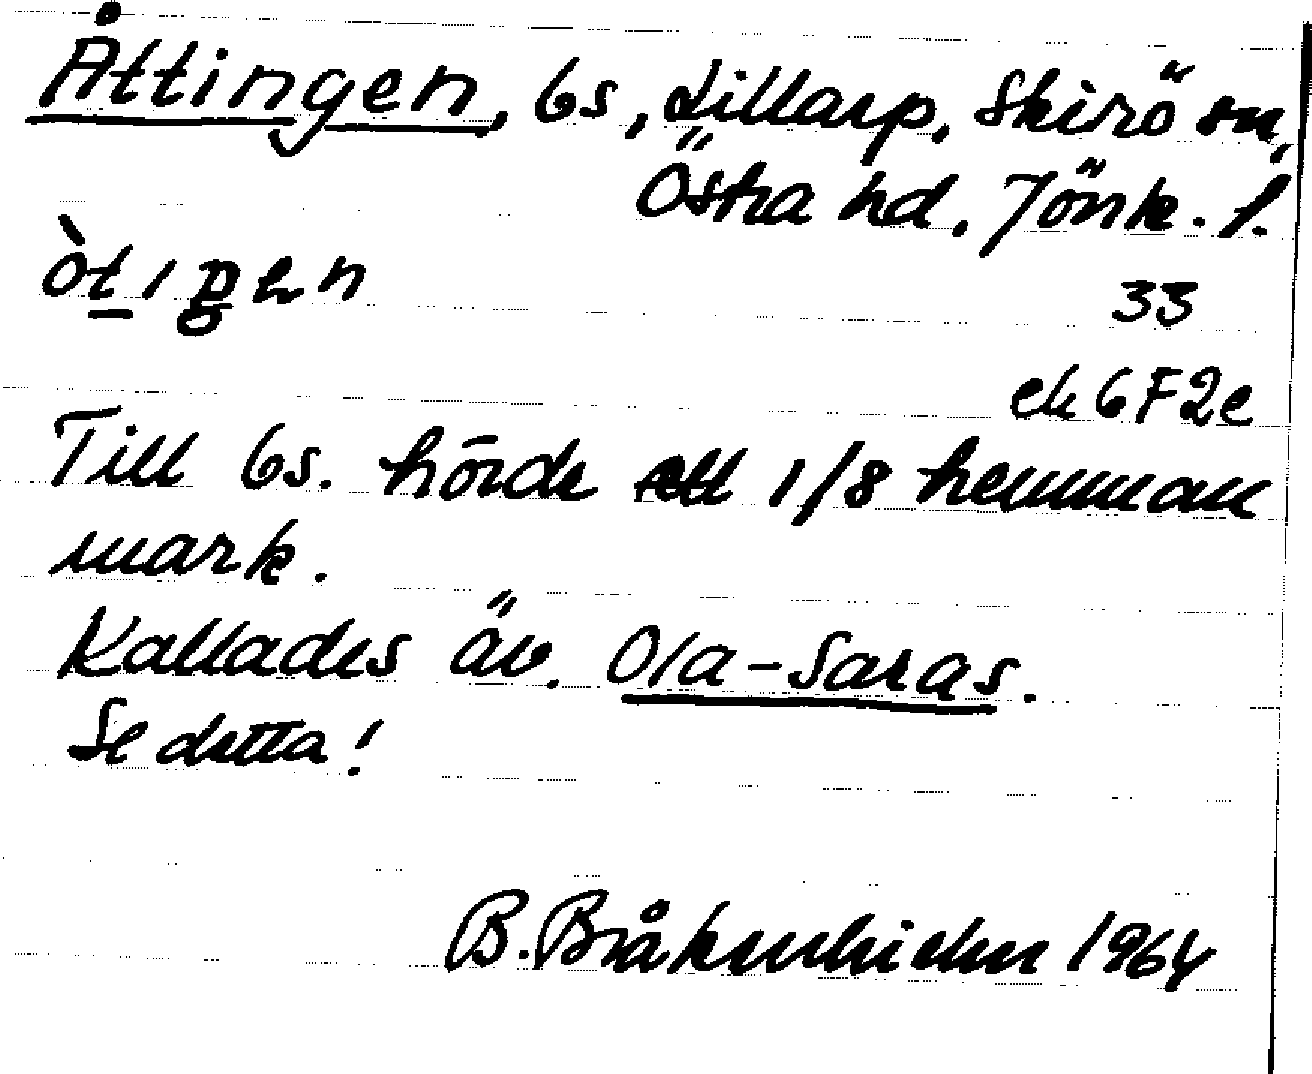 Åttingen, bs, Lillarp, Skirö sn,
Östra hd. Jönk. l.
33
ek 6F2e
Till bs. hörde ett 1/8 hemman
mark.
Kallades äv. Ola-Saras.
Se detta!
B. Bråkenhielm 1964